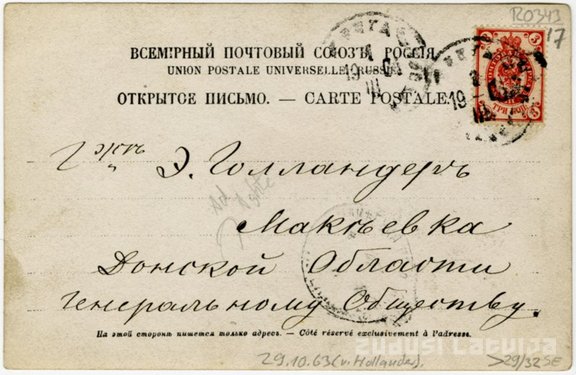 R0343
17
ВСЕМІРНЫЙ ПОЧТОВЫЙ СОЮЗЪ. РОССІЯ.
UNION POSTALE UNIVERSELLE. RUSSIE.
ОТКРЫТОЕ ПИСЬМО. — CARTE POSTALE.
3 3
ТРИ КОП.
Г-жѣ Э. Голландеръ
Макѣевка
Донской Области
Генеральному Обществу.
На этой сторонѣ пишется только адресъ. — Côté réservé exclusivement à l'adresse.
29.10.63 (v. Hollander).
29/32 SE
zudusi Latvija